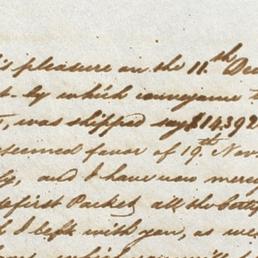 is pleasure on the 11th Dec
t by which conveyance
, was shipped say $14392
esteemed favor of 19th Nov
ly, and I have now mere
first Packet all the
t I left with you, as we